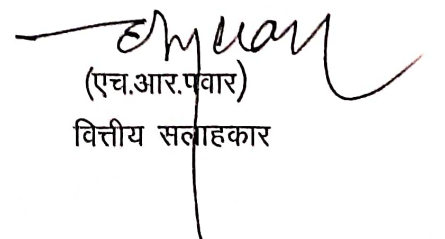 (एच.आर.पवार)
वित्तीय सलाहकार